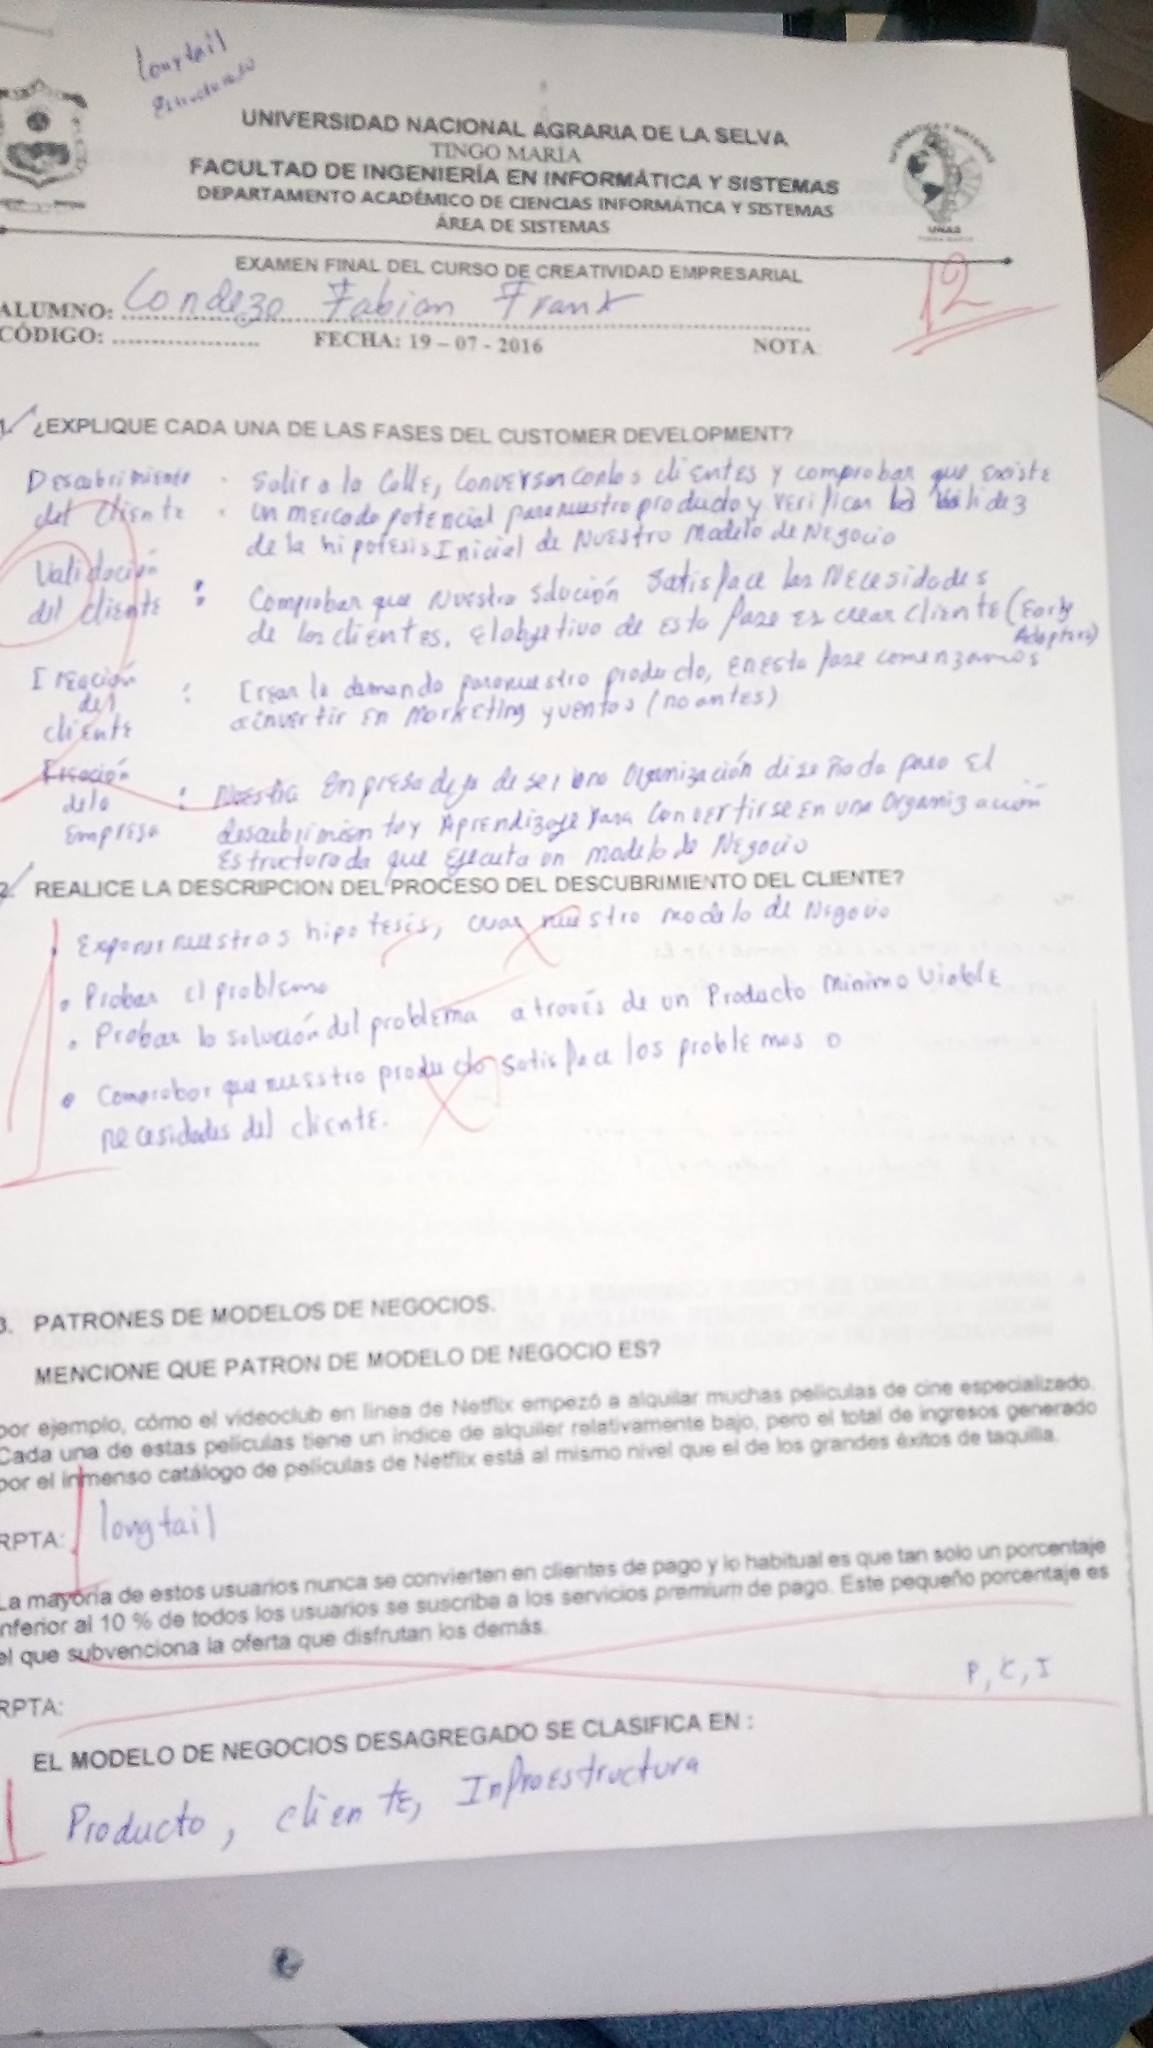 longtail
UNIVERSIDAD NACIONAL AGRARIA DE LA SELVA
TINGO MARÍA
FACULTAD DE INGENIERÍA EN INFORMÁTICA Y SISTEMAS
DEPARTAMENTO ACADÉMICO DE CIENCIAS INFORMÁTICA Y SISTEMAS
ÁREA DE SISTEMAS
UNAS
EXAMEN FINAL DEL CURSO DE CREATIVIDAD EMPRESARIAL
12
ALUMNO: Condezo Fabian Frank
CÓDIGO: .................... FECHA: 19 – 07 - 2016 NOTA
1. ¿EXPLIQUE CADA UNA DE LAS FASES DEL CUSTOMER DEVELOPMENT?
Descubrimiento : Salir a la Calle, Conversar con los clientes y comprobar que existe
del cliente un mercado potencial para nuestro producto y verificar la validez
de la hipotesis Inicial de Nuestro Modelo de Negocio
Validación
del cliente : Comprobar que Nuestra Solución Satisface las Necesidades
de los clientes. El objetivo de esta fase es crear cliente (Early
Adopters)
Creación : Crear la demanda para nuestro producto, en esta fase comenzamos
del a invertir en Marketing y ventas (no antes)
cliente
Creación
de la : Nuestra Empresa deja de ser una Organización diseñada para El
Empresa descubrimiento y Aprendizaje para Convertirse En una Organización
Estructurada que Ejecuta un modelo de Negocio
2. REALICE LA DESCRIPCION DEL PROCESO DEL DESCUBRIMIENTO DEL CLIENTE?
• Exponer nuestros hipotesis, crear nuestro modelo de Negocio
• Probar el problema
• Probar la solución del problema a través de un Producto Minimo Viable
• Comprobar que nuestro producto satisface los problemas o
necesidades del cliente.
3. PATRONES DE MODELOS DE NEGOCIOS.
MENCIONE QUE PATRON DE MODELO DE NEGOCIO ES?
por ejemplo, cómo el videoclub en línea de Netflix empezó a alquilar muchas películas de cine especializado.
Cada una de estas películas tiene un índice de alquiler relativamente bajo, pero el total de ingresos generado
por el inmenso catálogo de películas de Netflix está al mismo nivel que el de los grandes éxitos de taquilla.
RPTA: longtail
La mayoría de estos usuarios nunca se convierten en clientes de pago y lo habitual es que tan solo un porcentaje
inferior al 10 % de todos los usuarios se suscriba a los servicios premium de pago. Este pequeño porcentaje es
el que subvenciona la oferta que disfrutan los demás.
P, C, I
RPTA:
EL MODELO DE NEGOCIOS DESAGREGADO SE CLASIFICA EN :
Producto, cliente, Infraestructura